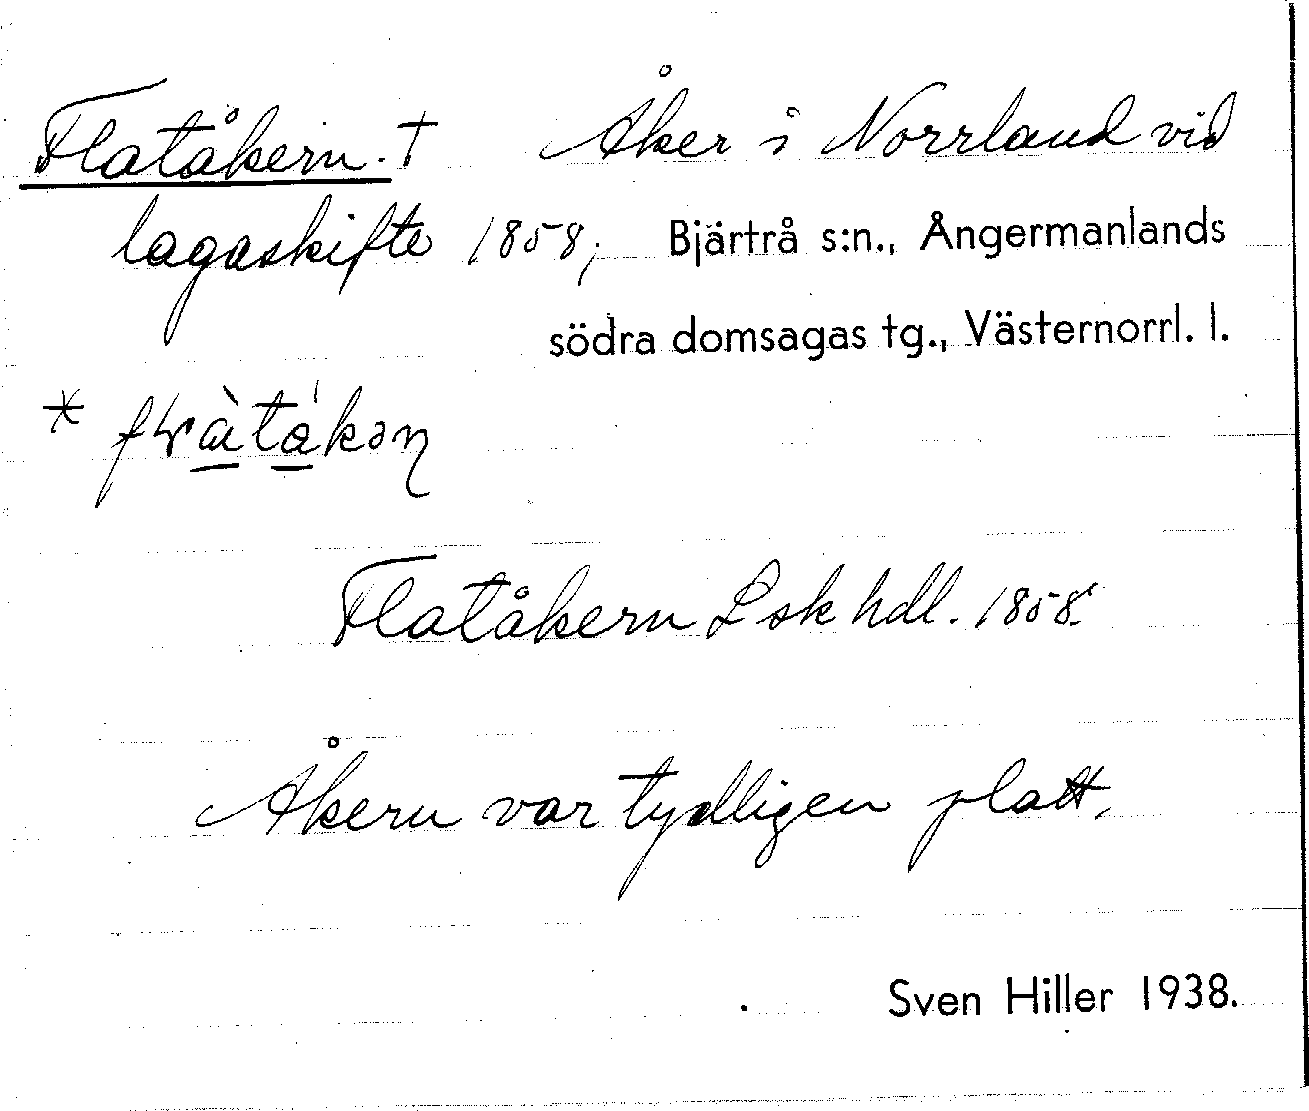 Flatåkern. † Åker i Norrland vid
lagaskifte 1858, Bjärtrå s:n., Ångermanlands
södra domsagas tg., Västernorrl. l.
*
Flatåkern Lsk hdl. 1858.
Åkern var tydligen platt.
Sven Hiller 1938.